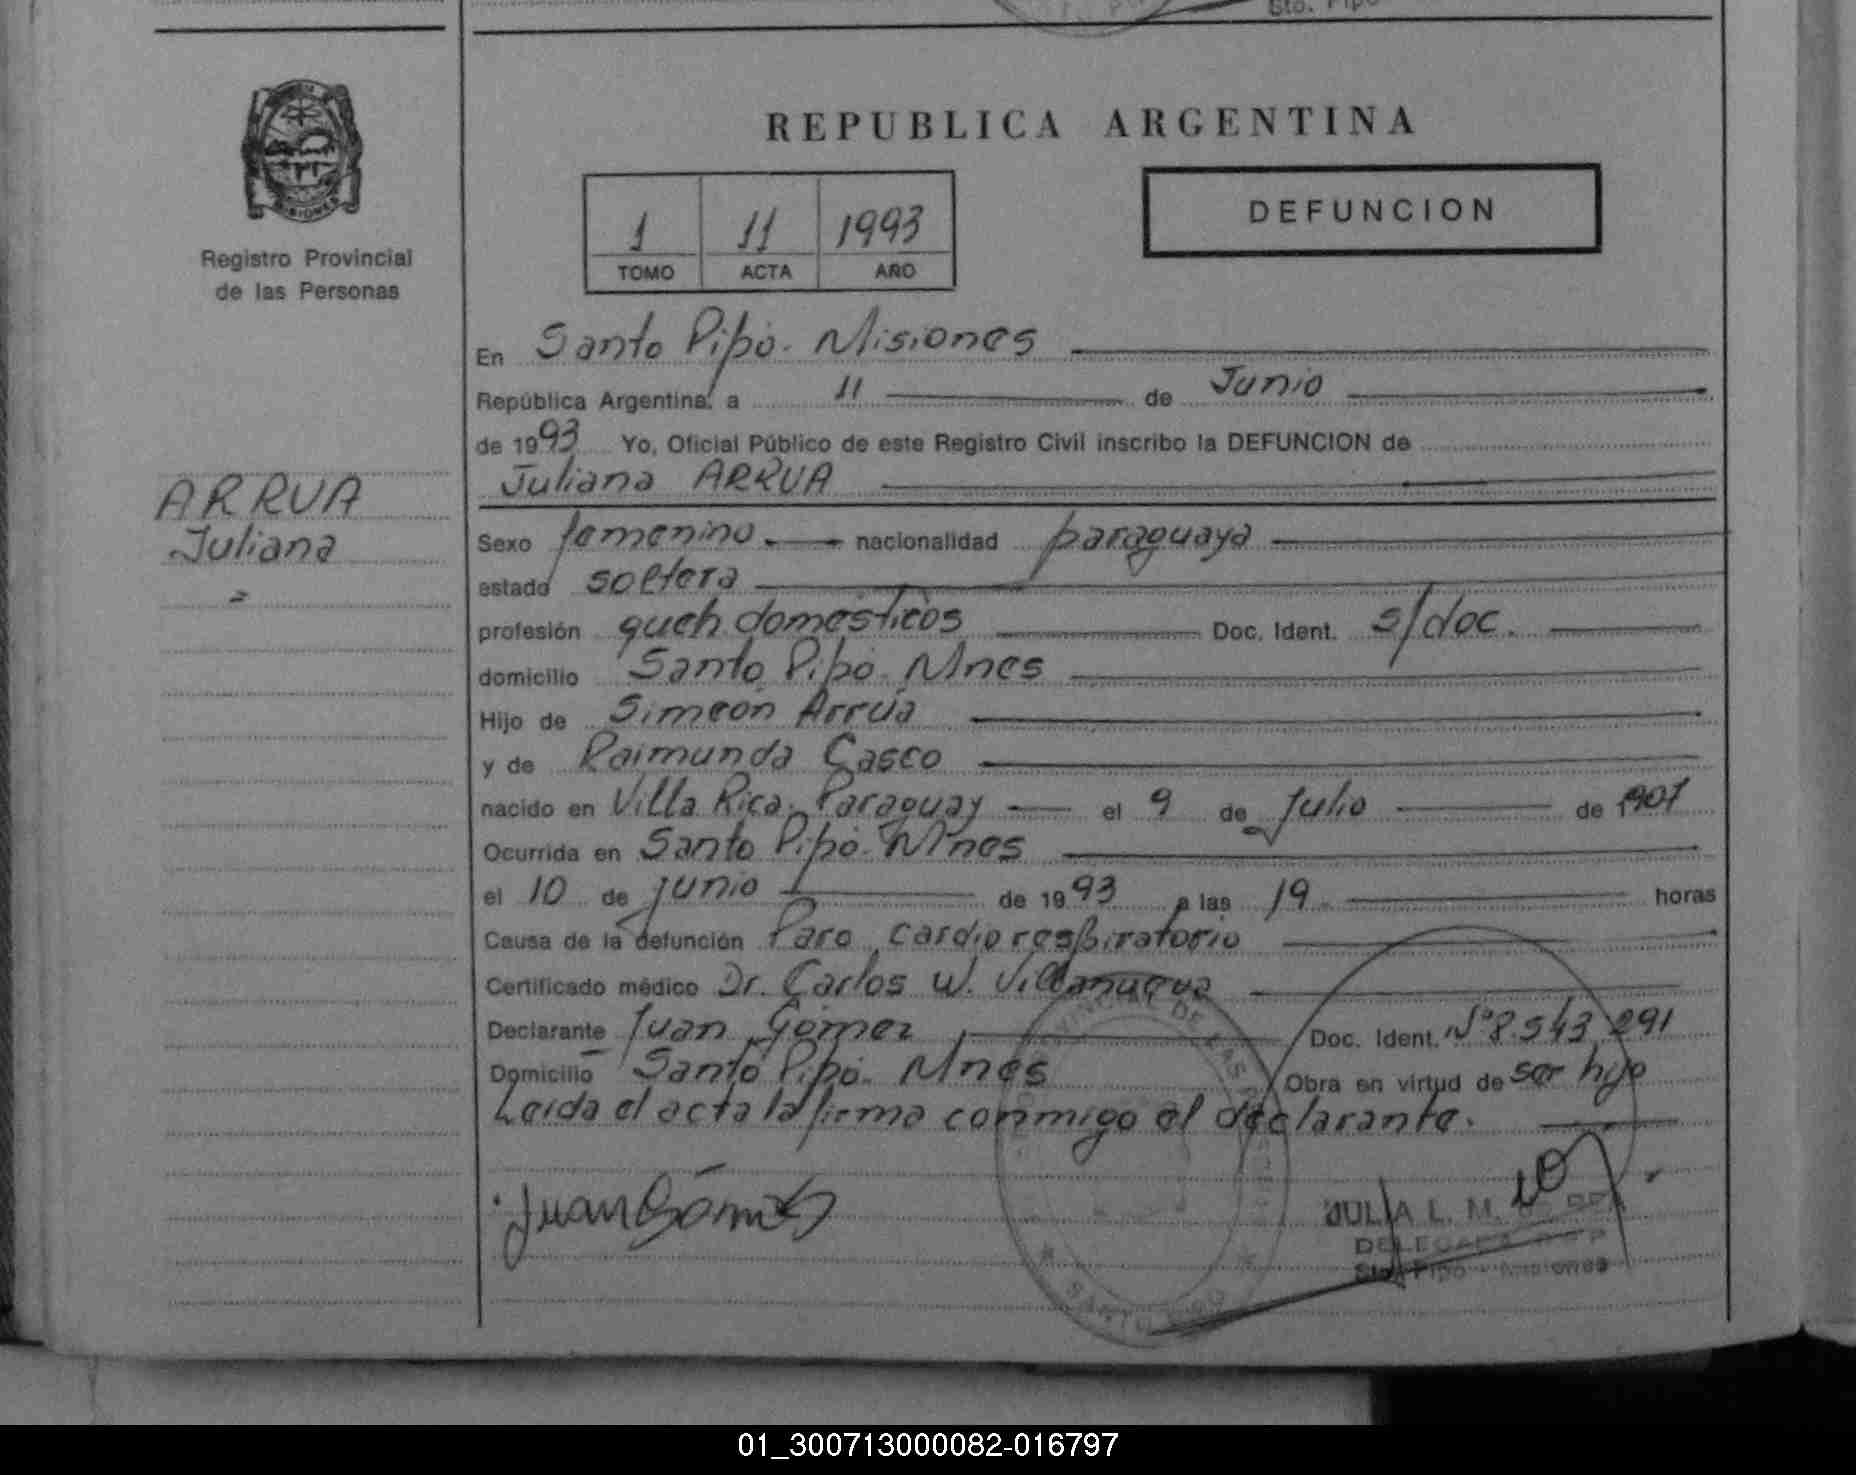 Sto. Pipo
REPUBLICA ARGENTINA
1 11 1993
TOMO ACTA AÑO
DEFUNCION
MISIONES
Registro Provincial
de las Personas
ARRUA
Juliana
En Santo Pipó. Misiones
República Argentina, a 11 de Junio
de 1993 Yo, Oficial Público de este Registro Civil inscribo la DEFUNCION de
Juliana ARRUA
Sexo femenino nacionalidad paraguaya
estado soltera
profesión queh. domésticos Doc. Ident. s/doc.
domicilio Santo Pipó. Mnes
Hijo de Simeón Arrúa
y de Raimunda Casco
nacido en Villa Rica. Paraguay el 9 de Julio de 1907
Ocurrida en Santo Pipó. Mnes
el 10 de junio de 1993 a las 19 horas
Causa de la defunción Paro cardio respiratorio
Certificado médico Dr. Carlos W. Villanueva
Declarante Juan Gómez Doc. Ident. Nº 8.543.291
Domicilio Santo Pipó. Mnes Obra en virtud de ser hijo
Leída el acta la firma conmigo el declarante.
Juan Gómez
JULIA L. M.
DELEGADA
Sto. Pipó - Misiones
SANTO PIPO
01_300713000082-016797